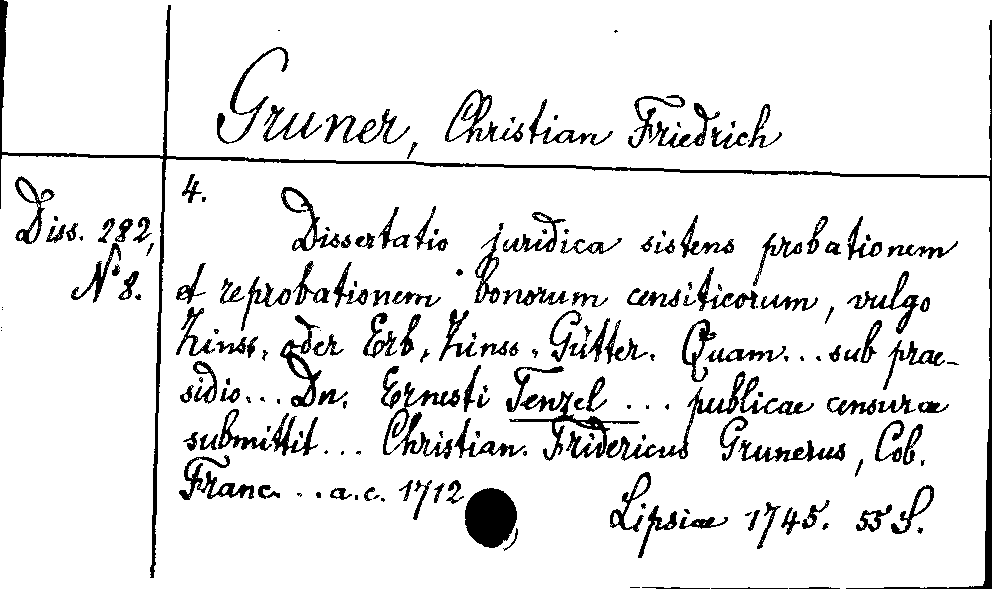 Gruner, Christian Friedrich
4.
Diss. 282,
N 8.
Dissertatio juridica sistens probationem
et reprobationem bonorum censiticorum, vulgo
Zinss- oder Erb-Zinss-Gütter. Quam... sub prae-
sidio... Dn. Ernesti Tenzel ... publicae censurae
submittit... Christian. Fridericus Grunerus, Cob.
Franc. .. a.c. 1712
Lipsiae 1745. 55 S.